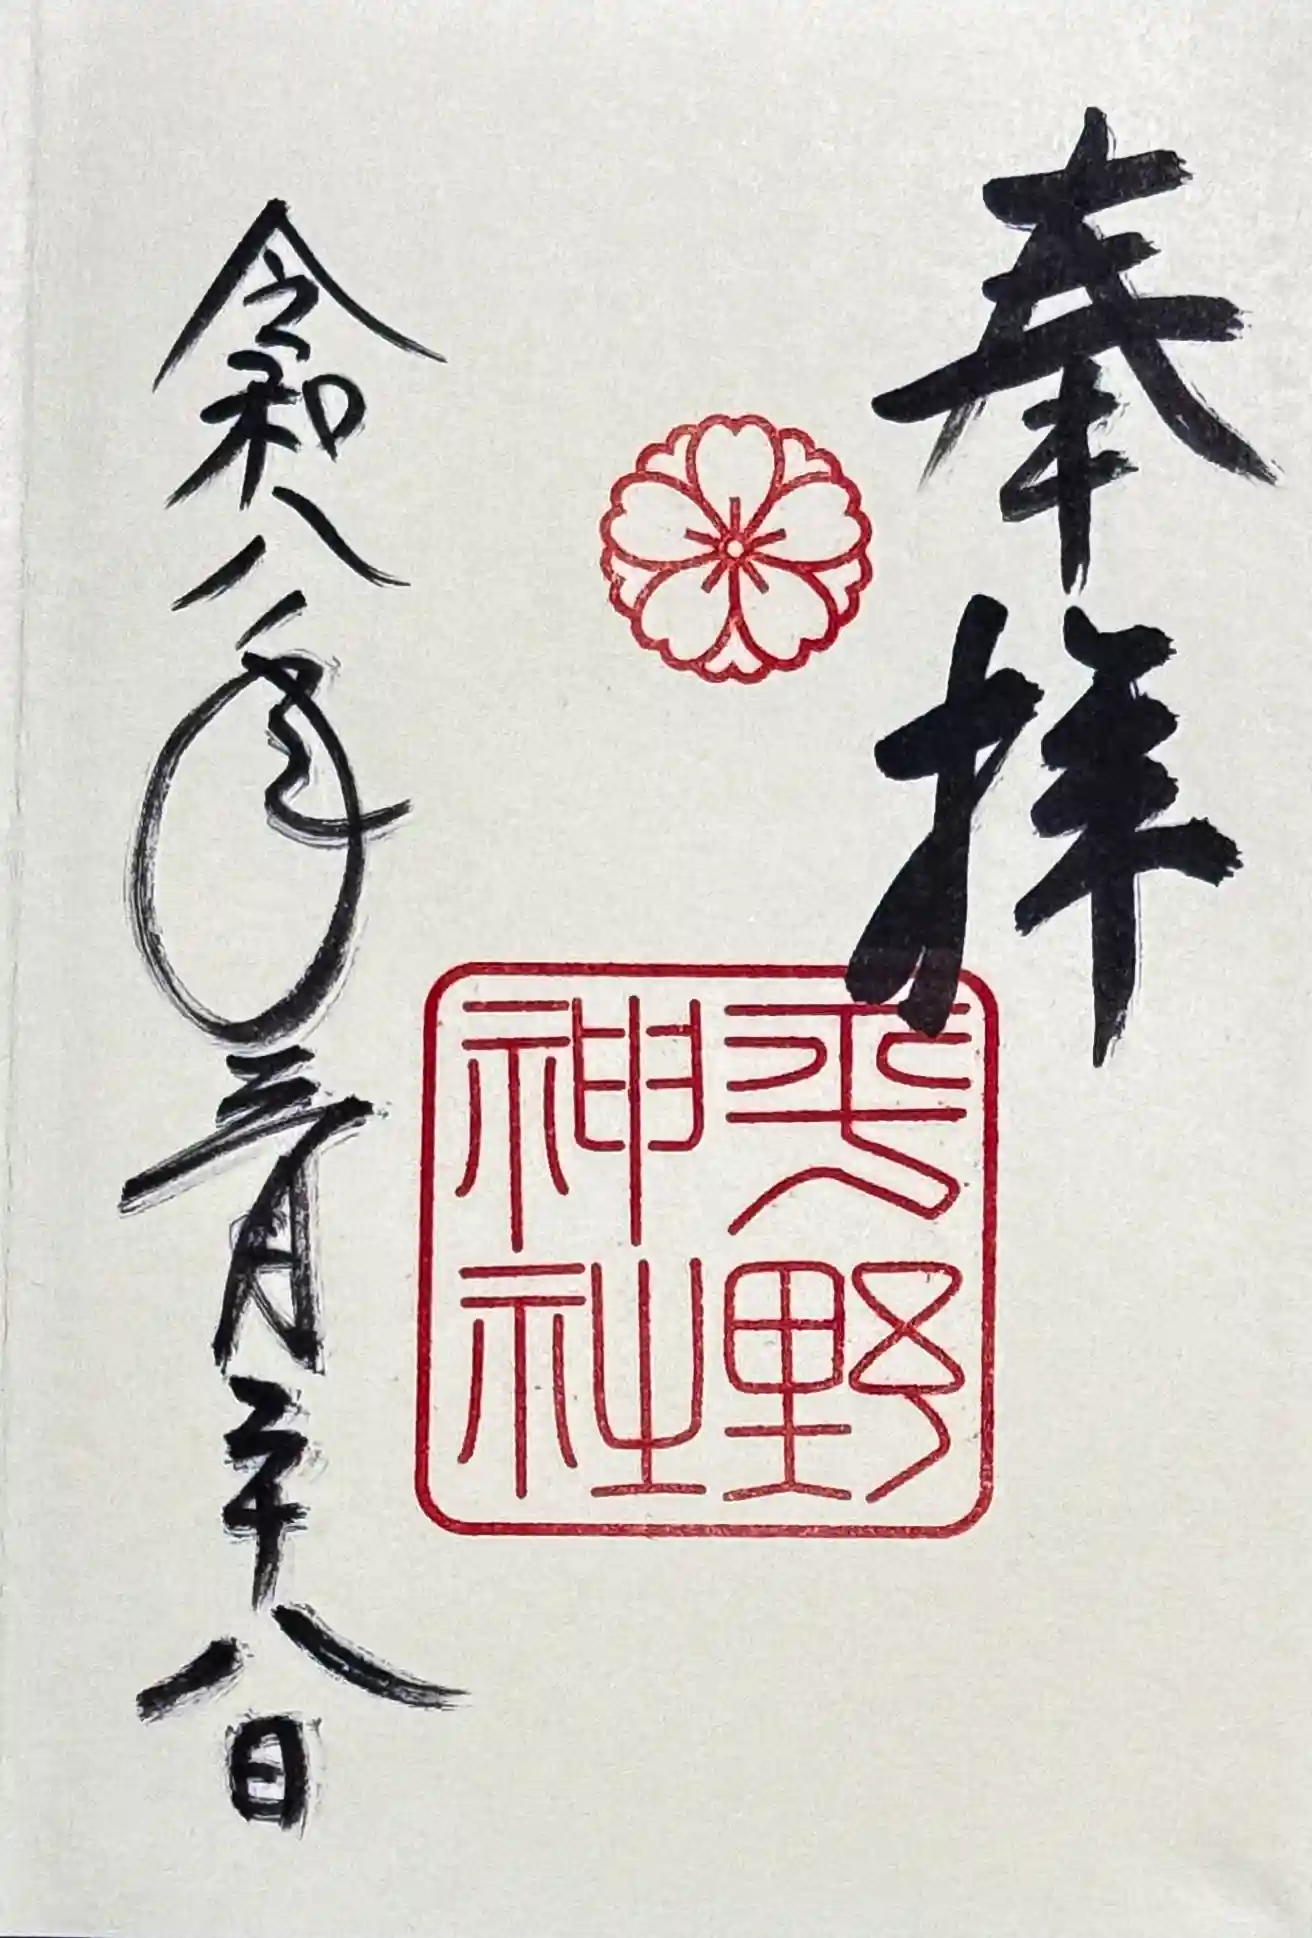 奉拝
平野
神社
令和八年三月二十八日